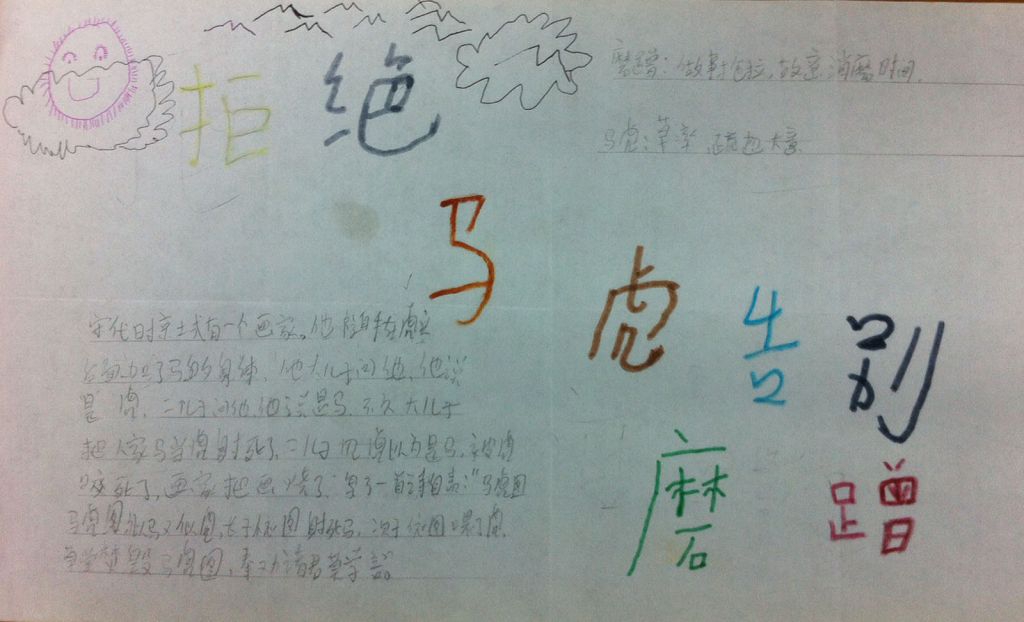 拒绝
马虎告别
磨蹭
磨蹭：做事拖拉，故意消磨时间。
马虎：草率，疏忽大意
宋代时京城有一个画家。他随手在虎头
后面加了马的身体，他大儿子问他，他说
是虎，二儿子问他他说是马，不久大儿子
把人家马当虎射死了，二儿子把虎以为是马，被虎
咬死了，画家把画烧了，写了一首诗自责：“马虎图
马虎图，似马又似虎，长子依图射死马，次子依图喂了虎。
草堂焚毁马虎图，奉劝诸君莫学吾。”